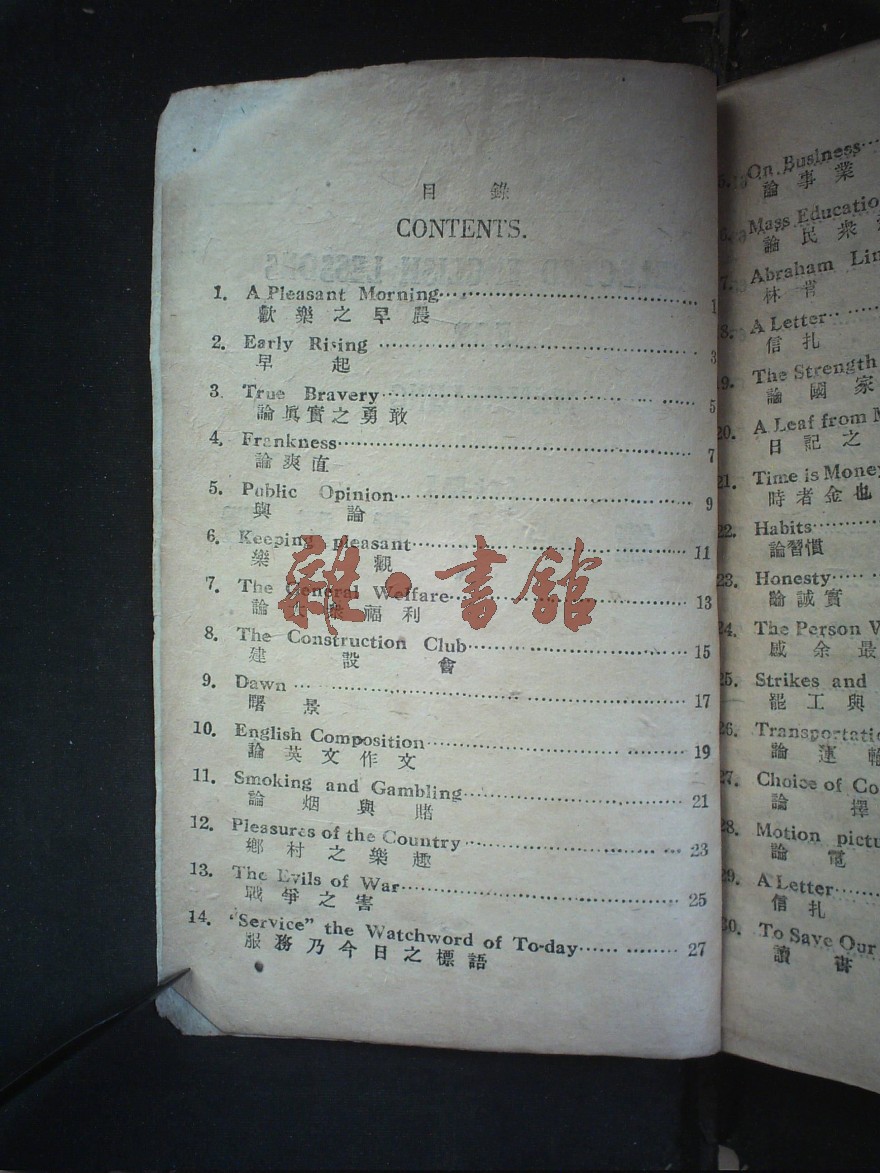 目 錄
CONTENTS.
1. A Pleasant Morning 1
歡樂之早晨
2. Early Rising 3
早 起
3 True Bravery 5
論眞實之勇敢
4. Frankness 7
論爽直
5. Public Opinion 9
輿 論
6. Keeping pleasant 11
樂 觀
7. The General Welfare 13
論大衆福利
8. The Construction Club 15
建 設 會
9. Dawn 17
曙 景
10. English Composition 19
論英文作文
11. Smoking and Gambling 21
論烟與賭
12. Pleasures of the Country 23
鄉村之樂趣
13. The Evils of War 25
戰爭之害
14. "Service" the Watchword of To-day 27
服務乃今日之標語
雜·書館
On Business
論事業
Mass Educatio
論民衆
Abraham Lin
林肯
A Letter
信扎
The Strength
論國家
20. A Leaf from
日記之
21. Time is Money
時者金也
22. Habits
論習慣
23. Honesty
論誠實
24. The Person
余最
25. Strikes and
罷工與
26. Transportatio
論運輸
27. Choice of Co
論擇
28. Motion pictu
論電
29. A Letter
信扎
30. To Save Our
讀書